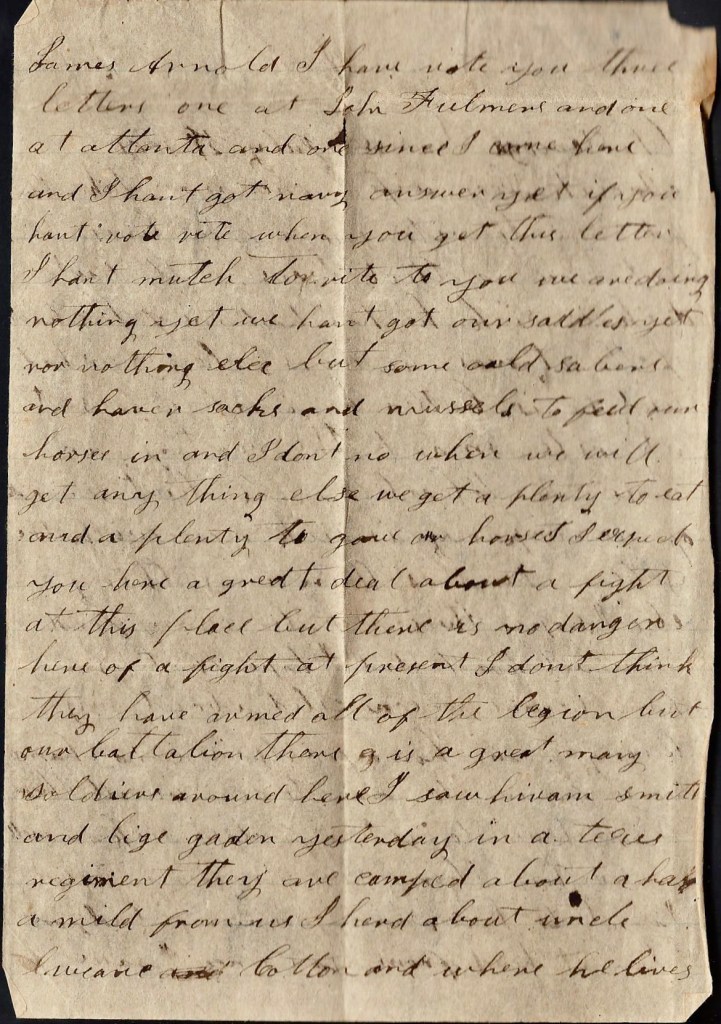 James Arnold I have rote you three
letters one at John Fulmers and one
at atlanta and one since I came here
and I hant got nary answer yet if you
hant rote rite when you get this letter
I hant mutch to rite to you we are doing
nothing yet we hant got our saddles yet
nor nothing else but some oald sabers
and haver sacks and mussels to feed our
horses in and I dont no when we will
get any thing else we get a plenty to eat
and a plenty to gave our horses I expect
you here a great deal about a fight
at this place but there is no danger
here of a fight at present I dont think
they have armed all of the legion but
our battalion there is a great many
soldiers around here I saw hiram smith
and lige gaden yesterday in a texas
regiment they are camped about a half
a mild from us I herd about uncle
and Cotton and where he lives